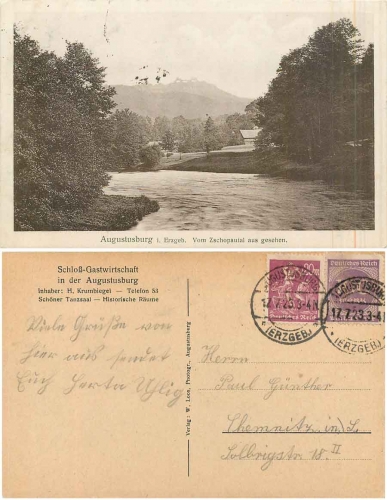 Augustusburg i. Erzgeb. Vom Zschopautal aus gesehen.
Schloß-Gastwirtschaft
in der Augustusburg
Inhaber: H. Krumbiegel — Telefon 53
Schöner Tanzsaal — Historische Räume
Viele Grüße von
hier aus sendet
Euch Herta Uhlig
Verlag: W. Loos, Photogr., Augustusburg
Deutsches Reich
17.7.23.3-4
(ERZGEB.)
17.7.23.3-4
(ERZGEB.)
Herrn
Paul Günther
Chemnitz i/S.
Solbrigstr 18 II